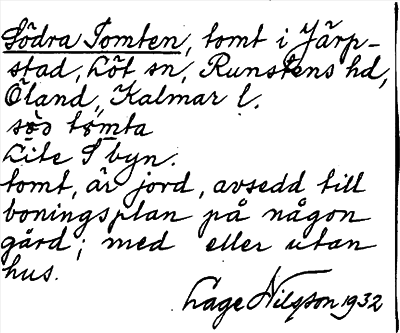 Södra Tomten, tomt i Järp-
stad, Löt sn, Runstens hd,
Öland, Kalmar l.
tomta
Lite S byn.
tomt, är jord, avsedd till
boningsplan på någon
gård; med eller utan
hus.
Lage Nilsson 1932